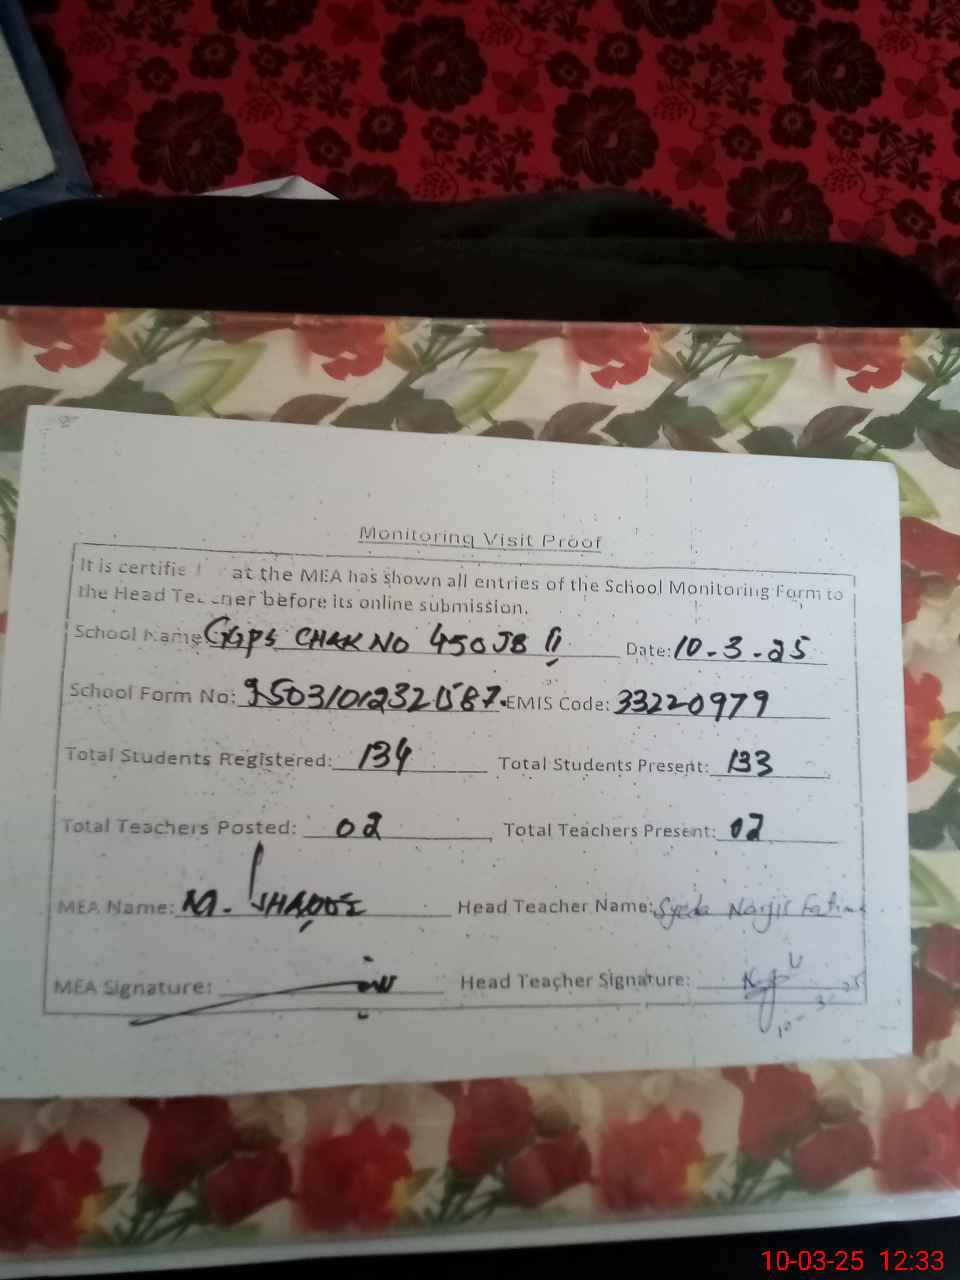 Monitoring Visit Proof
It is certifie at the MEA has shown all entries of the School Monitoring Form to
the Head Teacher before its online submission.
School Name GGPS CHAK NO 450 JB II Date: 10-3-25
School Form No: EMIS Code: 33220979
Total Students Registered: 134 Total Students Present: 133
Total Teachers Posted: 02 Total Teachers Present: 02
MEA Name: M. Head Teacher Name: Syeda Narjis Fatima
MEA Signature: Head Teacher Signature:
10-3-25
10-03-25 12:33